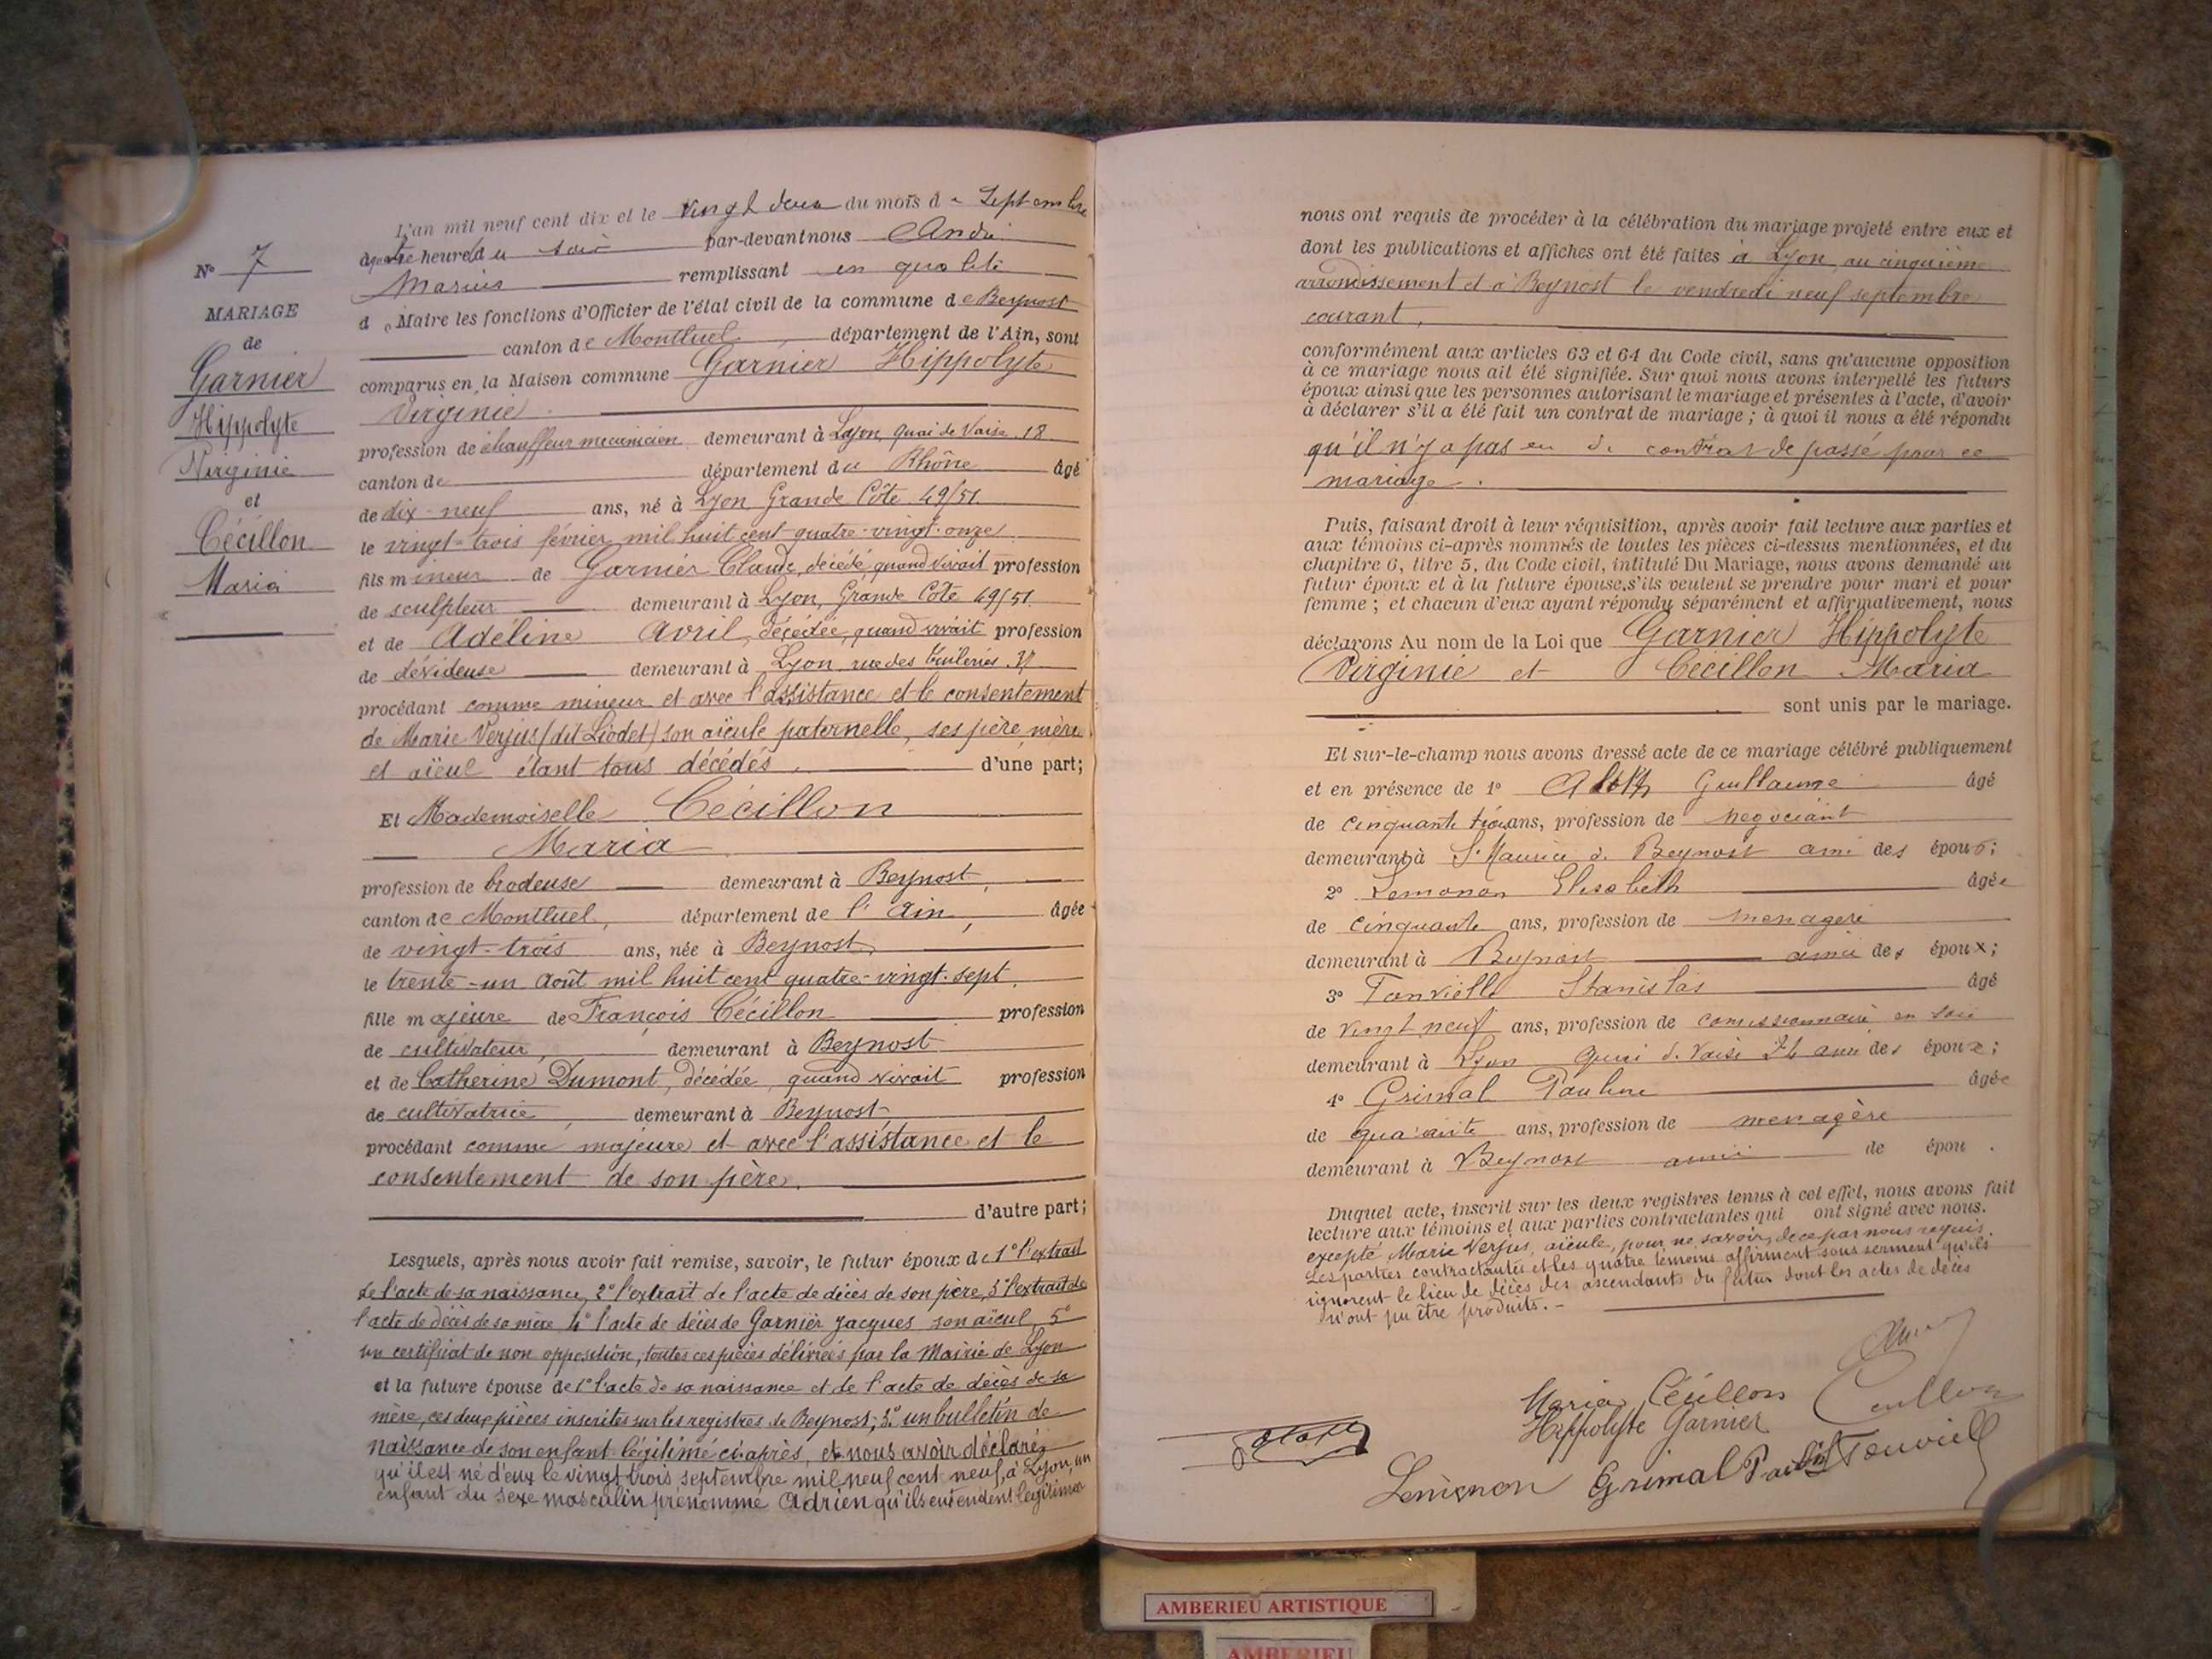 L'an mil neuf cent dix et le vingt deux du mois de Septembre
à quatre heure du soir par-devant nous André
Marius remplissant en qualité
de Maire les fonctions d'Officier de l'état civil de la commune de Beynost
canton de Montluel, département de l'Ain, sont
comparus en la Maison commune Garnier Hippolyte
Virginie
profession de chauffeur mécanicien demeurant à Lyon, quai de Vaise 18
canton de département du Rhône âgé
de dix-neuf ans, né à Lyon, Grande Côte 49/51
le vingt-trois février mil huit cent quatre-vingt-onze
fils mineur de Garnier Claude, décédé, quand vivait profession
de sculpteur demeurant à Lyon, Grande Côte 49/51
et de Adéline Avril, décédée, quand vivait profession
de dévideuse demeurant à Lyon, rue des tuileries
procédant comme mineur et avec l'assistance et le consentement
de Marie Verjus (dit Liodet) son aïeule paternelle, ses père, mère
et aïeul étant tous décédés, d'une part;
Et Mademoiselle Cécillon
Maria
profession de brodeuse demeurant à Beynost,
canton de Montluel, département de l'Ain, âgée
de vingt-trois ans, née à Beynost,
le trente-un Août mil huit cent quatre-vingt-sept,
fille majeure de François Cécillon profession
de cultivateur, demeurant à Beynost
et de Catherine Dumont, décédée, quand vivait profession
de cultivatrice, demeurant à Beynost,
procédant comme majeure et avec l'assistance et le
consentement de son père.
d'autre part;
Lesquels, après nous avoir fait remise, savoir, le futur époux de 1° l'extrait
de l'acte de sa naissance, 2° l'extrait de l'acte de décès de son père, 3° l'extrait de
l'acte de décès de sa mère 4° l'acte de décès de Garnier Jacques son aïeul, 5°
un certificat de non opposition, toutes ces pièces délivrées par la Mairie de Lyon
et la future épouse de 1° l'acte de sa naissance et de l'acte de décès de sa
mère, ces deux pièces inscrites sur les registres de Beynost; 3° un bulletin de
naissance de son enfant légitimé ci-après, et nous avoir déclaré
qu'il est né d'eux le vingt trois septembre mil neuf cent neuf, à Lyon, un
enfant du sexe masculin prénommé Adrien qu'ils entendent légitimer
N° 7
MARIAGE
de
Garnier
Hippolyte
Virginie
et
Cécillon
Maria
nous ont requis de procéder à la célébration du mariage projeté entre eux et
dont les publications et affiches ont été faites à Lyon, au cinquième
arrondissement et à Beynost le vendredi neuf septembre
courant,
conformément aux articles 63 et 64 du Code civil, sans qu'aucune opposition
à ce mariage nous ait été signifiée. Sur quoi nous avons interpellé les futurs
époux ainsi que les personnes autorisant le mariage et présentes à l'acte, d'avoir
à déclarer s'il a été fait un contrat de mariage ; à quoi il nous a été répondu
qu'il n'y a pas eu de contrat de passé pour ce
mariage.
Puis, faisant droit à leur réquisition, après avoir fait lecture aux parties et
aux témoins ci-après nommés de toutes les pièces ci-dessus mentionnées, et du
chapitre 6, titre 5, du Code civil, intitulé Du Mariage, nous avons demandé au
futur époux et à la future épouse, s'ils veulent se prendre pour mari et pour
femme ; et chacun d'eux ayant répondu séparément et affirmativement, nous
déclarons Au nom de la Loi que Garnier Hippolyte
Virginie et Cécillon Maria
sont unis par le mariage.
Et sur-le-champ nous avons dressé acte de ce mariage célébré publiquement
et en présence de 1° Guillaume âgé
de cinquante trois ans, profession de négociant
demeurant à St Maurice de Beynost ami des époux;
2° Elisabeth âgée
de cinquante ans, profession de ménagère
demeurant à Beynost amie des époux;
3° Stanislas âgé
de vingt neuf ans, profession de comissionnaire en soie
demeurant à Lyon quai de Vaise 24 ami des époux;
4° Grimal Pauline âgée
de quarante ans, profession de menagère
demeurant à Beynost amie de épou .
Duquel acte, inscrit sur les deux registres tenus à cet effet, nous avons fait
lecture aux témoins et aux parties contractantes qui ont signé avec nous.
excepté Marie Verjus, aïeule, pour ne savoir, de ce par nous requis.
Les parties contractantes et les quatre témoins affirment sous serment qu'ils
ignorent le lieu de décès des ascendants du futur dont les actes de décès
n'ont pu être produits.
Maria Cécillon Cécillon
Hippolyte Garnier
Grimal
AMBERIEU ARTISTIQUE
AMBERIEU